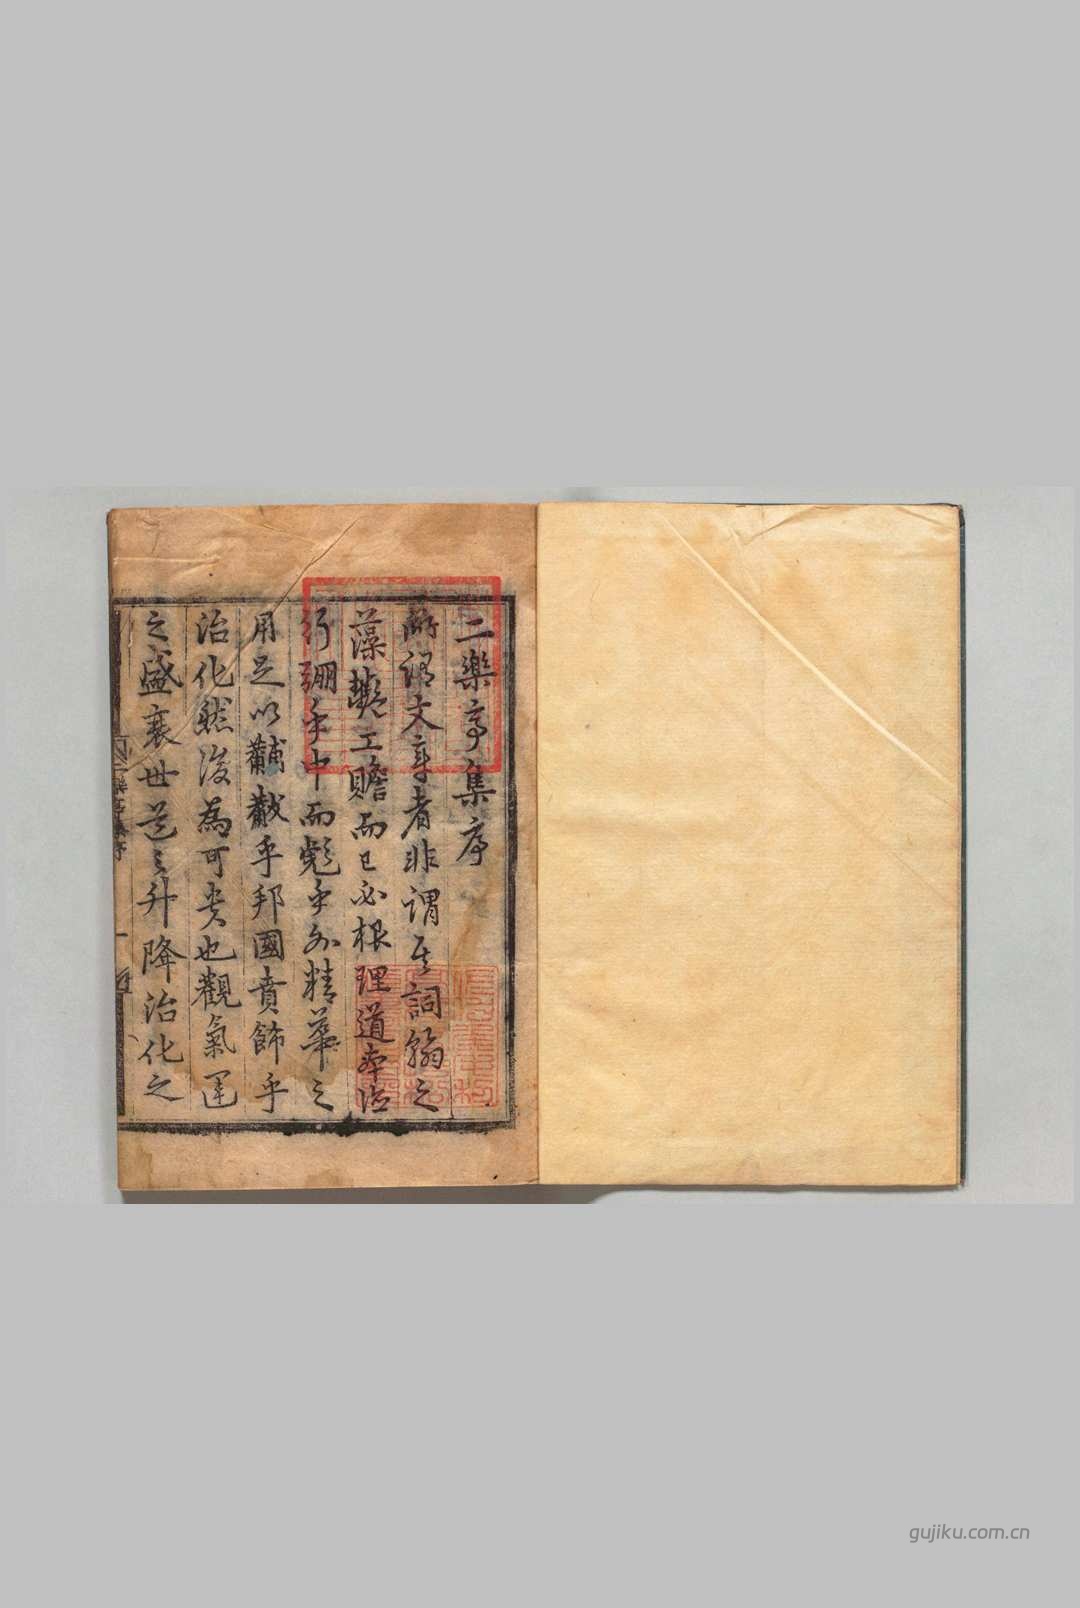 二樂亭集序
所謂文章者非謂其詞翰之
藻艷工贍而已必根理道本德
行弸乎中而彪乎外精華之
用足以黼黻乎邦國賁飾乎
治化然後為可貴也觀氣運
之盛衰世道之升降治化之
gujiku.com.cn